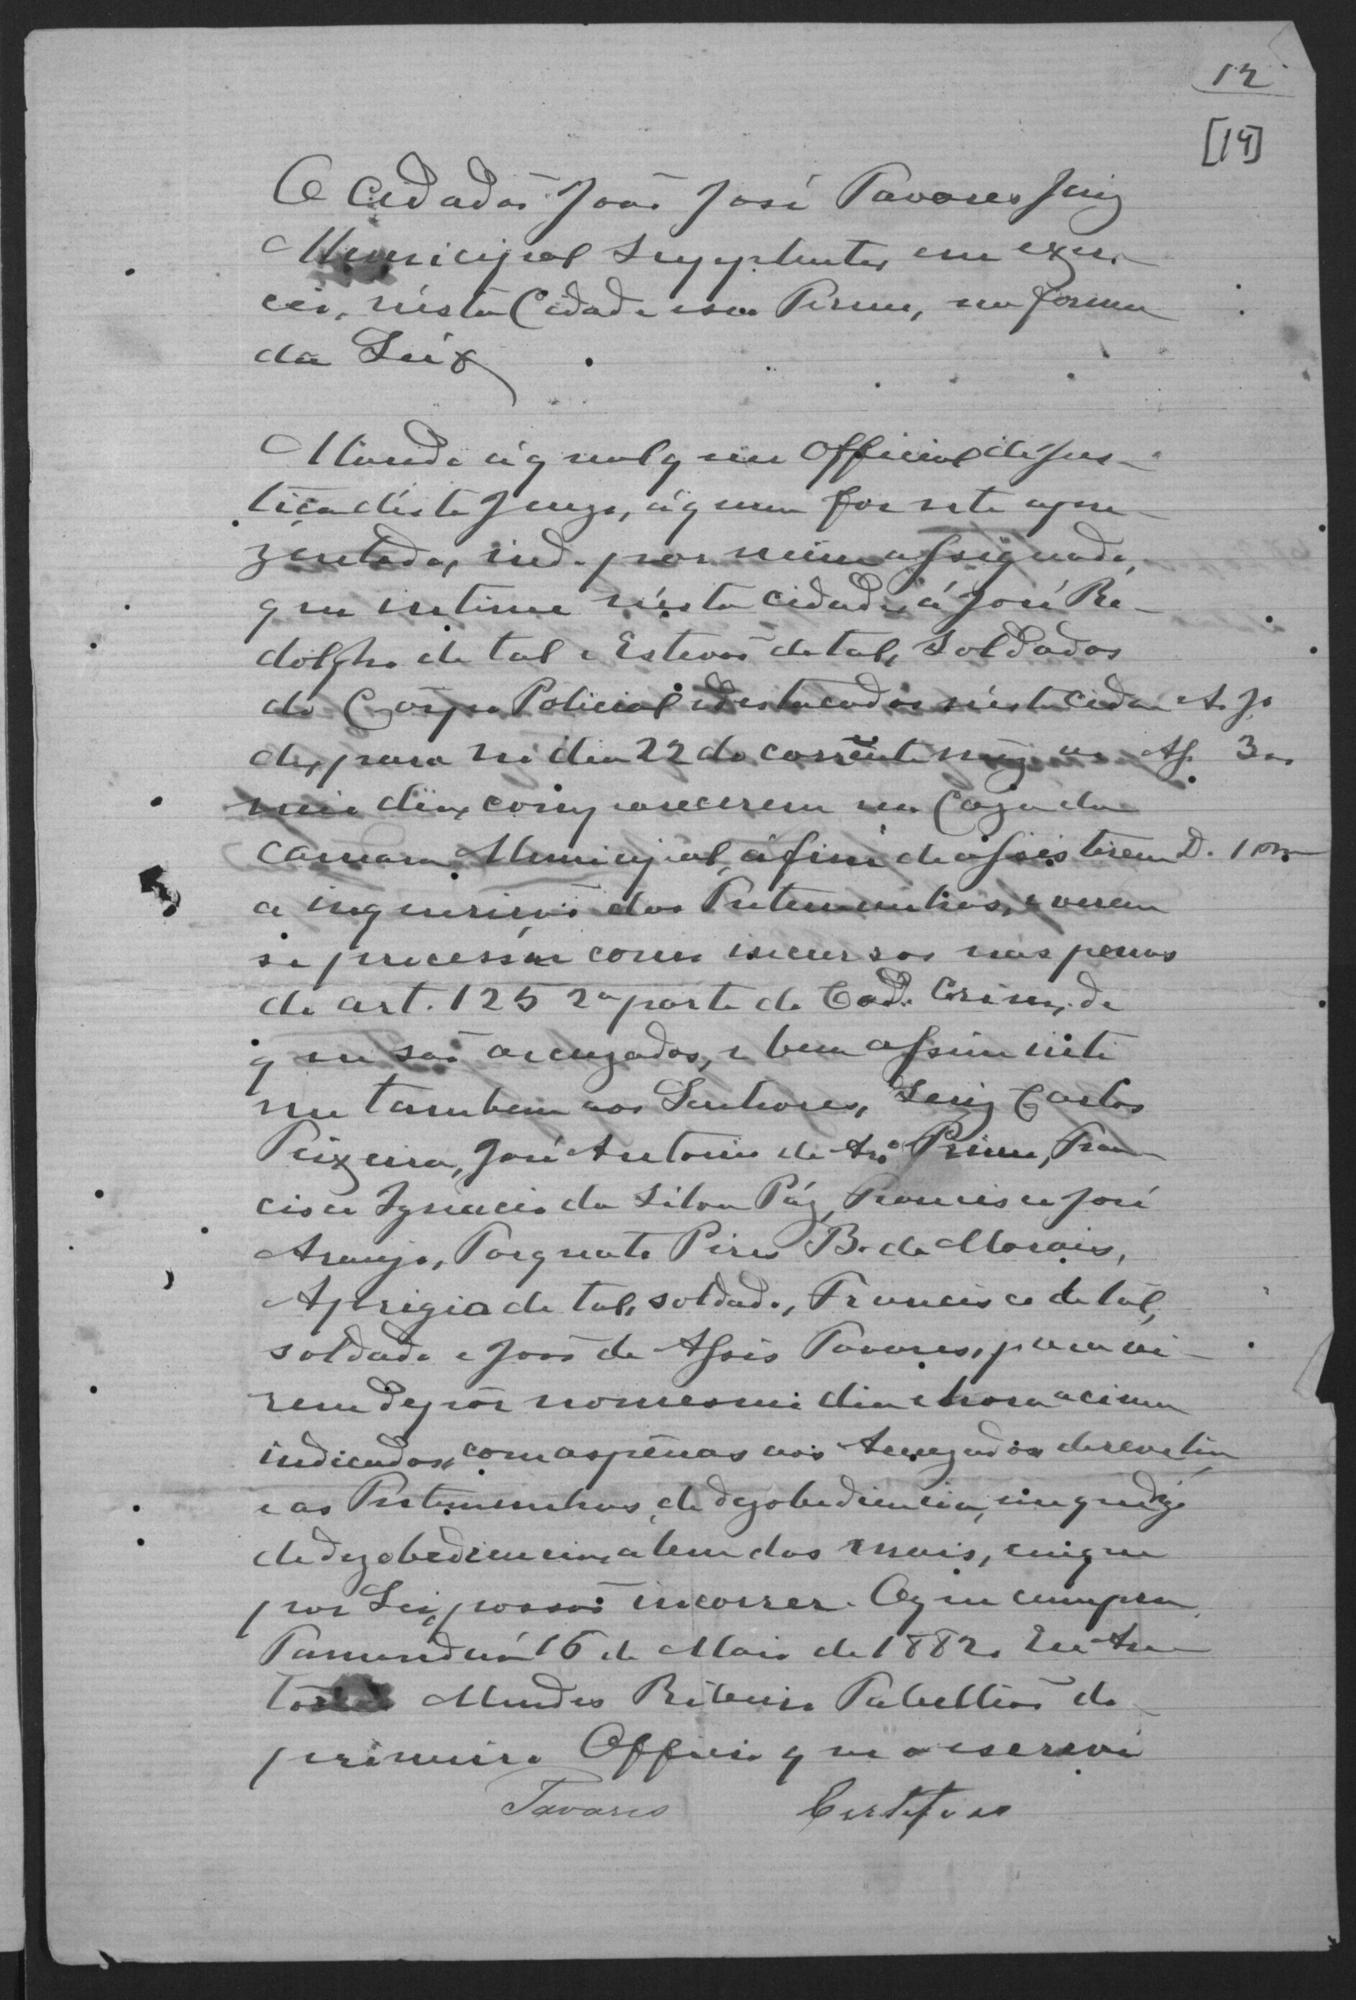 12
[14]
O Cidadão João José Tavares Juiz
Municipal Supplente, em exer-
cio, nésta Cidade e seo Termo, na forma
da Lei &
Mando á qualquer Official de Jus-
tiça déste Juizo, á quem for este apre-
zentado, indo por mim assignado,
que intime nésta cidade, á José Ro-
dolpho de tal e Estevão de tal, soldados
do Corpo Policial destacados nésta cida-
de, para no dia 22 do corrente mez ao
meio dia, comparecerem na Caza da
Camara Municipal, áfim de assistirem
a inquirição das Testemunhas, e verem
se processar como incursos nas penas
do art. 125 2ª parte do Cod. Crim., de
que são acuzados, e bem assim inti
me tambem aos Senhores, Luiz Carlos
Teixeira, José Antonio de Arº Primo, Fran-
cisco Ignacio da Silva Páz, Francisco José
Araujo, Torquato Pires B. de Moraes,
Aprigio de tal, soldado, Francisco de tal,
soldado e João de Assis Tavares, para vi-
rem depôr no mesmo dia e hora acima
indicados, com as pênas aos Acuzados de revelia
e as Testemunhas, de dezobediencia,
de dezobediencia, alem das mais, em que
por Lei, possão incorrer. O que cumpra
Tamanduá 16 de Maio de 1882. Eu An-
tonio Mendes Ribeiro Tabellião do
primeiro Officio que o escrevi
Tavares
Certifico